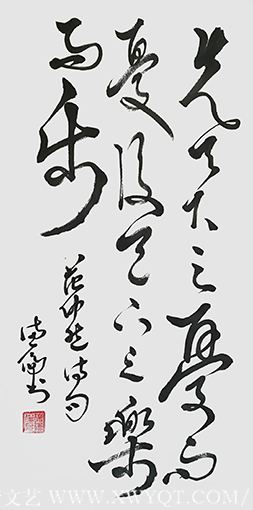 先天下之憂而
憂後天下之樂
而樂
范仲淹诗句
书
文艺 WWW.XWYQT.COM